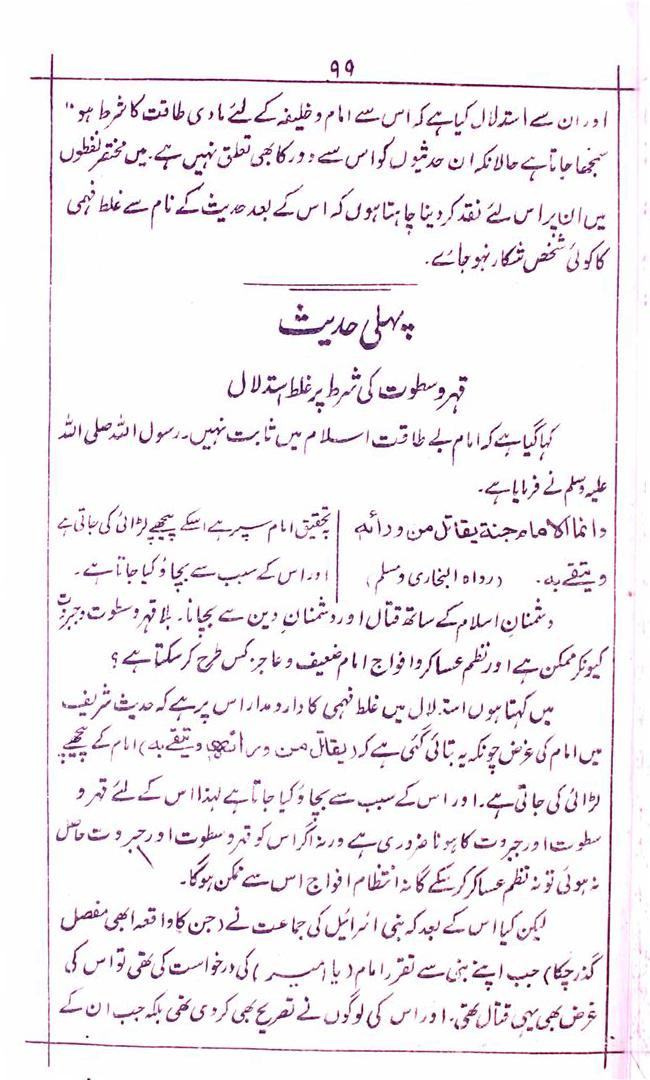 ۹۹
اور ان سے استدلال کیا ہے کہ اس سے امام و خلیفہ کے لئے مادی طاقت کا شرط ہو"
سمجھا جاتا ہے حالانکہ ان حدیثوں کو اس سے دور کا بھی تعلق نہیں ہے۔ میں مختصر لفظوں
میں ان پر اس لئے نقد کر دینا چاہتا ہوں کہ اس کے بعد حدیث کے نام سے غلط فہمی
کا کوئی شخص شکار نہو جائے۔
پہلی حدیث
قہر و سطوت کی شرط پر غلط استدلال
کہا گیا ہے کہ امام بے طاقت اسلام میں ثابت نہیں۔ رسول اللہ صلی اللہ
علیہ وسلم نے فرمایا ہے۔
وانما الامام جنة يقاتل من ورائه
ويتقے به۔ (رواہ البخاری ومسلم)
بتحقیق امام سپر ہے اسکے پیچھے لڑائی کی جاتی ہے
اور اس کے سبب سے بچاؤ کیا جاتا ہے۔
دشمنان اسلام کے ساتھ قتال اور دشمنانِ دین سے بچانا۔ بلا قہر و سطوت و جبروت
کیونکر ممکن ہے اور نظم عساکر و افواج امام ضعیف و عاجز کس طرح کر سکتا ہے؟
میں کہتا ہوں استدلال میں غلط فہمی کا دار و مدار اس پر ہے کہ حدیث شریف
میں امام کی غرض چونکہ یہ بتائی گئی ہے کہ (يقاتل من ورائه ويتقے به) امام کے پیچھے
لڑائی کی جاتی ہے۔ اور اس کے سبب سے بچاؤ کیا جاتا ہے لہذا اس کے لئے قہر و
سطوت اور جبروت کا ہونا ضروری ہے ورنہ اگر اس کو قہر و سطوت اور جبروت حاصل
نہ ہوئی تو نہ نظم عساکر کر سکے گا نہ انتظام افواج اس سے ممکن ہوگا۔
لیکن کیا اس کے بعد کہ بنی اسرائیل کی جماعت نے (جن کا واقعہ ابھی مفصل
گذر چکا) جب اپنے نبی سے تقرر امام (یا امیر) کی درخواست کی تھی تو اس کی
غرض بھی یہی قتال تھی۔ اور اس کی لوگوں نے تصریح بھی کر دی تھی بلکہ جب ان کے